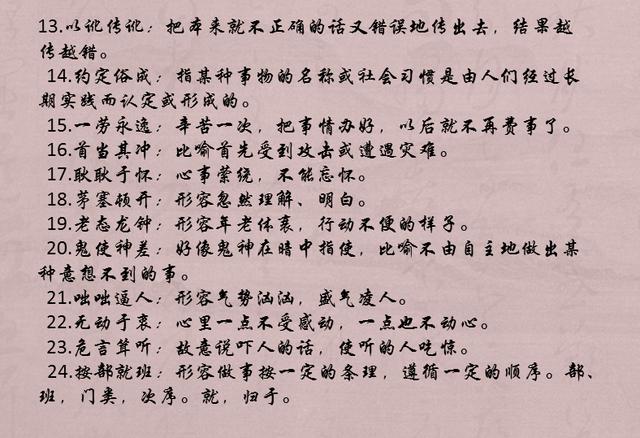 13.以讹传讹：把本来就不正确的话又错误地传出去，结果越
传越错。
14.约定俗成：指某种事物的名称或社会习惯是由人们经过长
期实践而认定或形成的。
15.一劳永逸：辛苦一次，把事情办好，以后就不再费事了。
16.首当其冲：比喻首先受到攻击或遭遇灾难。
17.耿耿于怀：心事萦绕，不能忘怀。
18.茅塞顿开：形容忽然理解、明白。
19.老态龙钟：形容年老体衰，行动不便的样子。
20.鬼使神差：好像鬼神在暗中指使，比喻不由自主地做出某
种意想不到的事。
21.咄咄逼人：形容气势汹汹，盛气凌人。
22.无动于衷：心里一点不受感动，一点也不动心。
23.危言耸听：故意说吓人的话，使听的人吃惊。
24.按部就班：形容做事按一定的条理，遵循一定的顺序。部、
班，门类，次序。就，归于。